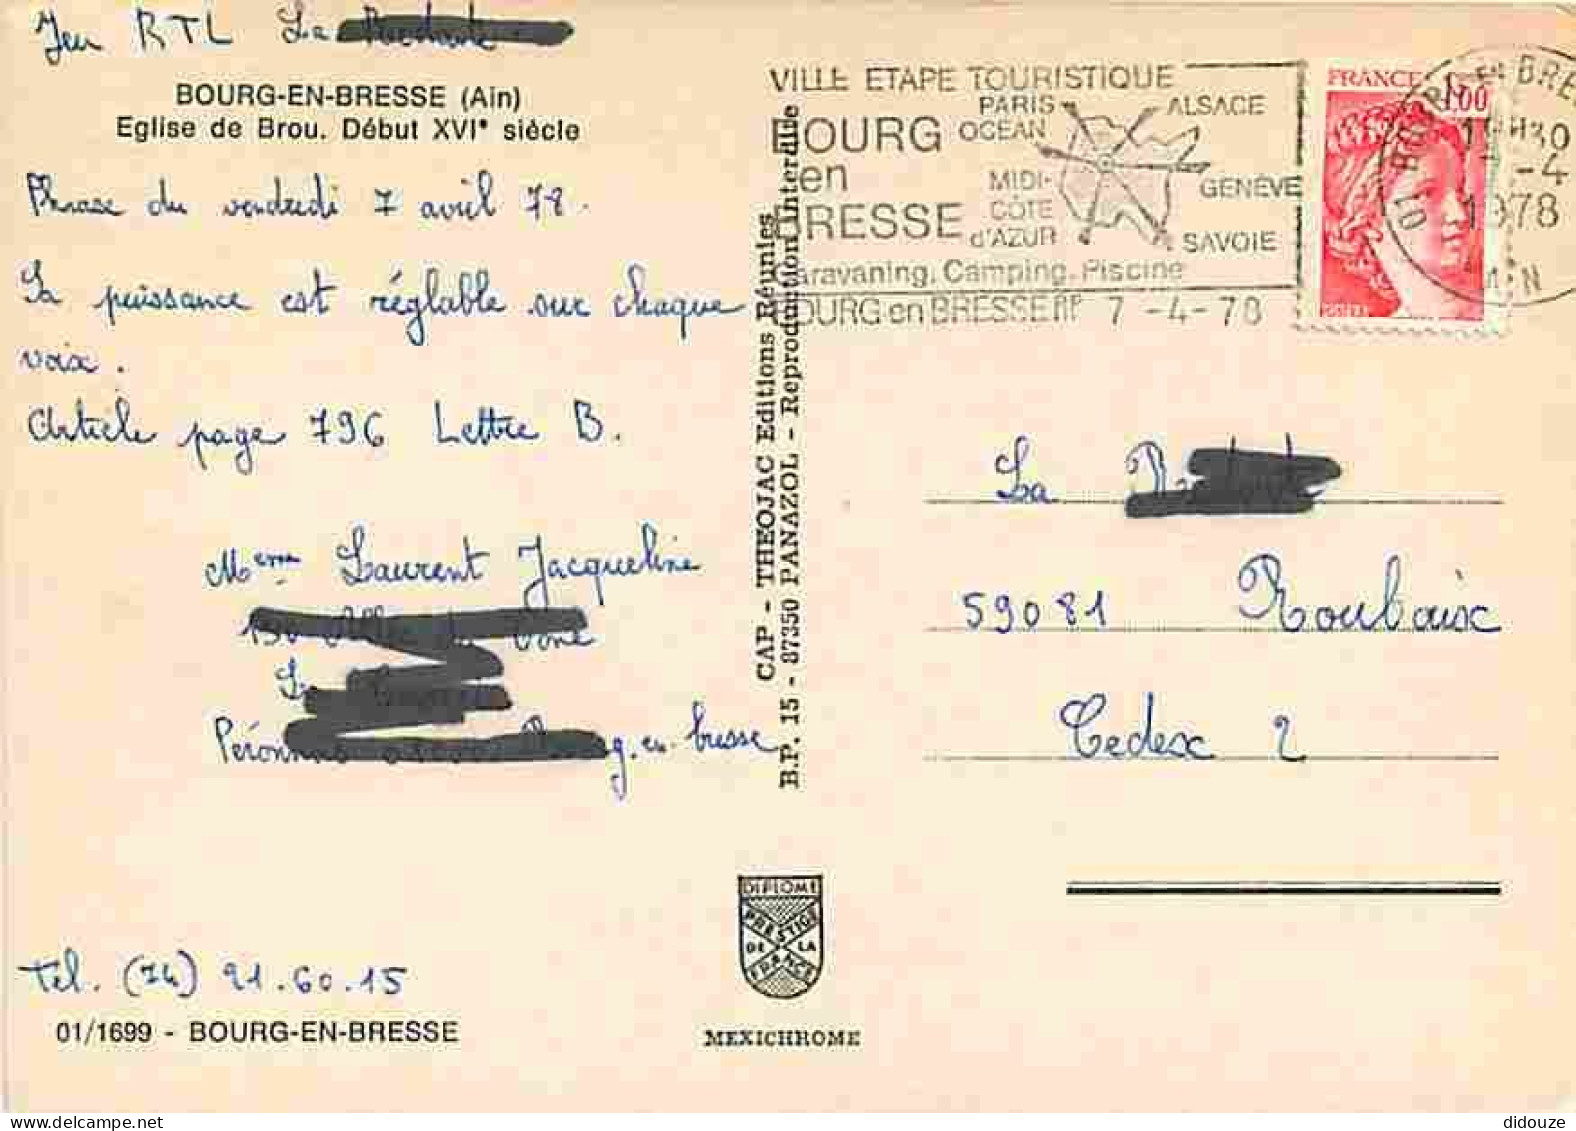 Jeu RTL La
BOURG-EN-BRESSE (Ain)
Eglise de Brou. Début XVIe siècle
Phrase du vendredi 7 avril 78.
La puissance est réglable sur chaque
voix.
Article page 796 Lettre B.
Mme Laurent Jacqueline
Bourg-en-bresse
Tel. (74) 21.60.15
01/1699 - BOURG-EN-BRESSE
CAP - THEOJAC Editions Réunies
B.P. 15 - 87350 PANAZOL - Reproduction interdite
DIPLOME
PRESTIGE
DE LA
FRANCE
MEXICHROME
VILLE ETAPE TOURISTIQUE
PARIS ALSACE
BOURG OCEAN
en MIDI- GENÈVE
BRESSE CÔTE
d'AZUR SAVOIE
Caravaning. Camping. Piscine
BOURG en BRESSE RP 7 -4-78
FRANCE 1.00
POSTES
01 BOURG EN BRESSE
-4
1978
AIN
La
59081 Roubaix
Cedex 2
didouze